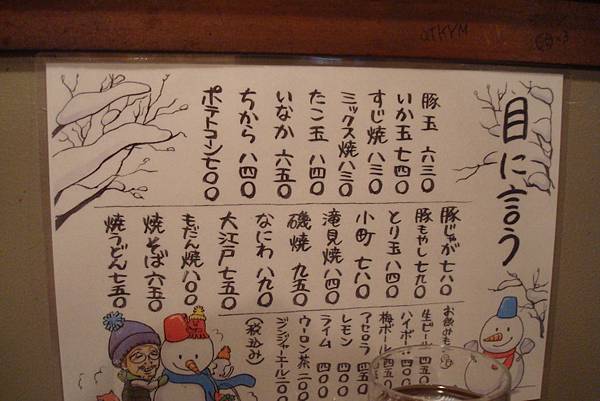 目に言う
豚玉 六三〇
いか玉 七四〇
すじ焼 八三〇
ミックス焼 八三〇
たこ玉 八四〇
いなか 六五〇
ちから 八四〇
ポテトコーン 七〇〇
豚じゃが 七八〇
豚もやし 七九〇
とり玉 八四〇
小町 七八〇
滝見焼 八四〇
磯焼 九五〇
なにわ 八九〇
大江戸 七五〇
もだん焼 八〇〇
焼そば 六五〇
焼うどん 七五〇
お飲みもの
生ビール 四五〇
ハイボール
梅ボール
アセロラ 五〇〇
レモン 四〇〇
ライム 四〇〇
ウーロン茶 二〇〇
ジンジャーエール 二〇〇
(税込み)
OTKYM